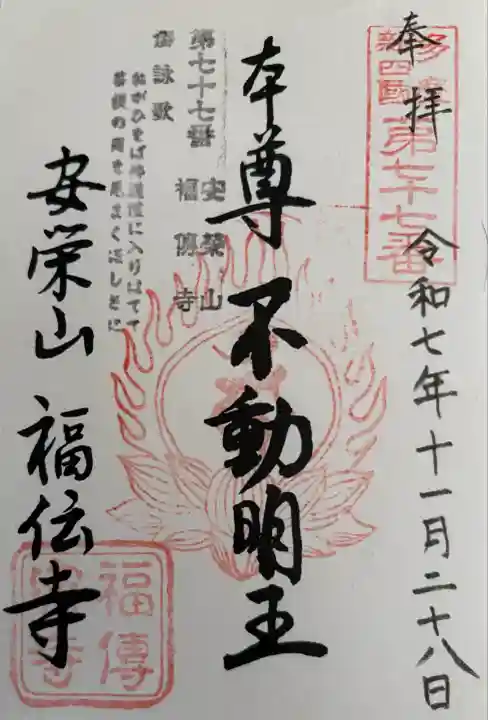 奉拝
多摩
新四国
第七十七番
令和七年十一月二十八日
本尊 不動明王
第七十七番 安榮山
福傳寺
御詠歌
ねがひをば仲道證に入りはてて
菩提の月を見まくほしさに
安栄山 福伝寺
福傳
安寺